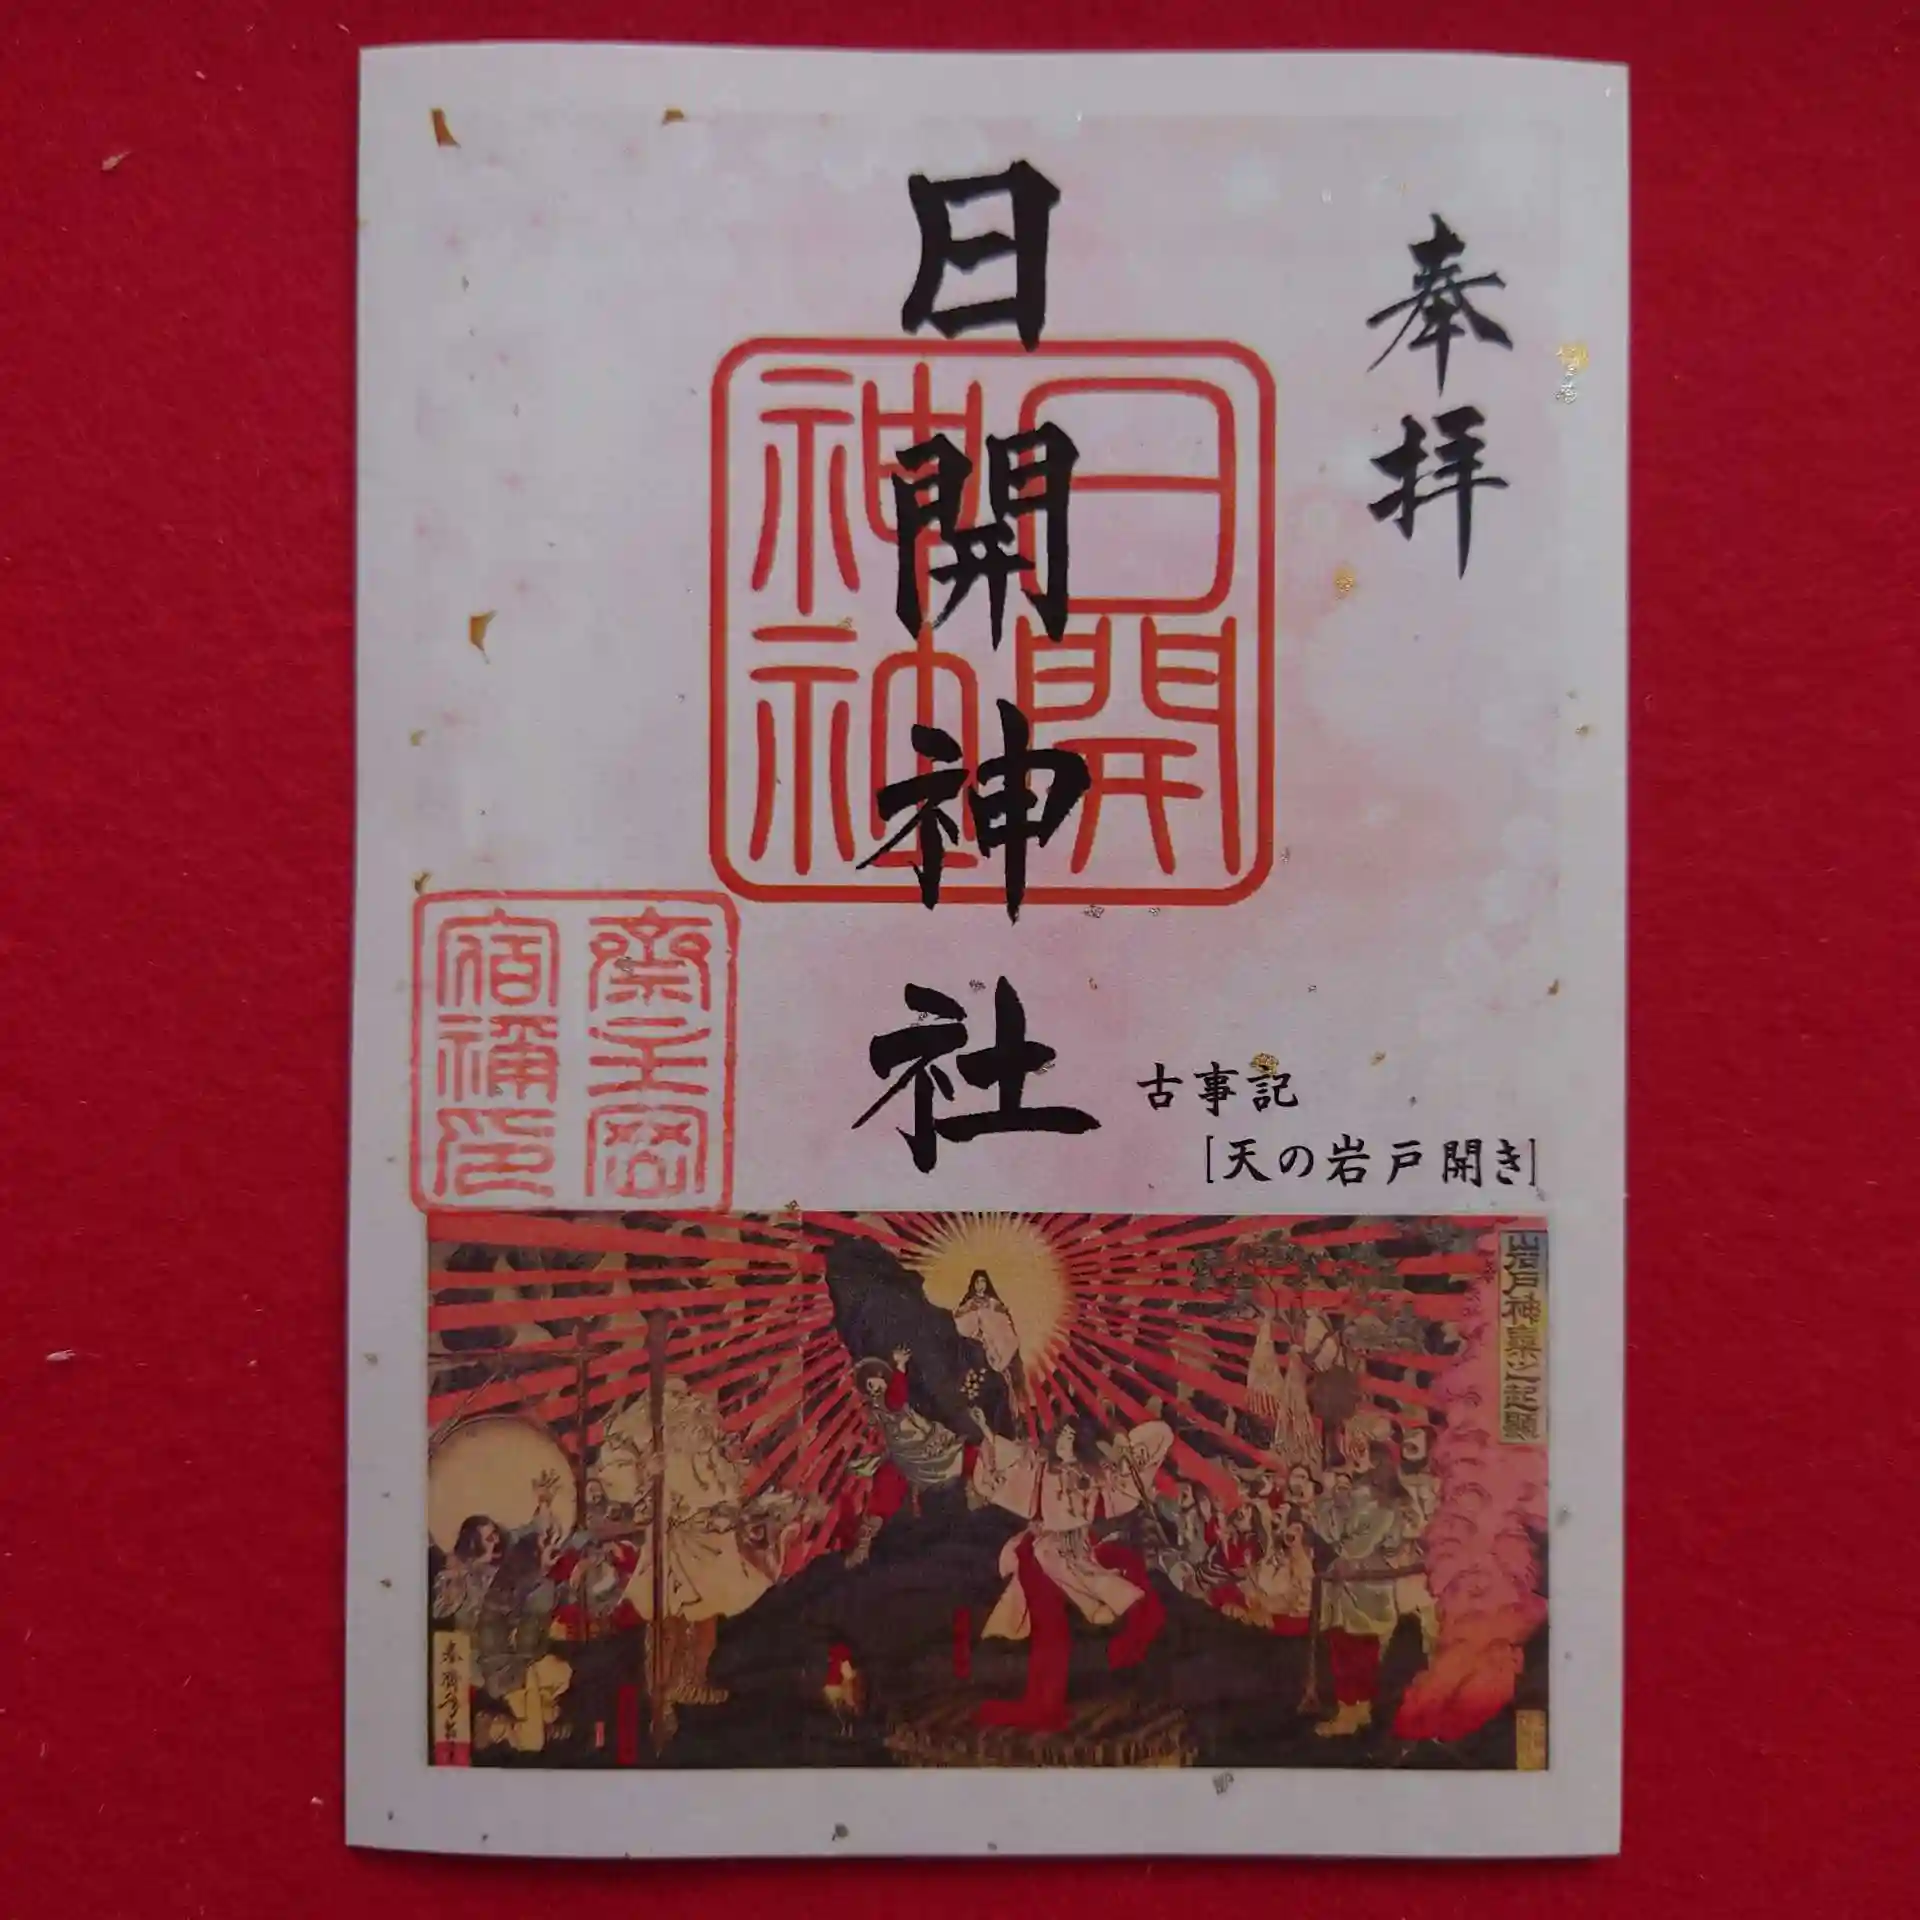 奉拝
日開神社
日開
神社
古事記
[天の岩戸開き]
岩戸神楽之起顕